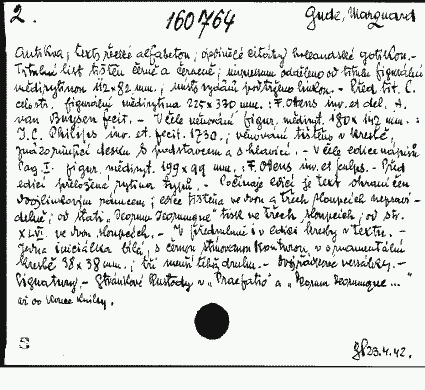 2.
160764
Gude, Marquard
Antikva; texty řecké alfabetou; ojedinělé citáty holandské gotikou. -
Titulní list tištěn černě a červeně; impressum odděleno od titulu figurální
mědirytinou 112 × 82 mm.; místo vydání podtrženo linkou. - Před tit. l.
celostr. figurální mědirytina 225 × 330 mm.: F. Ottens inv. et del. A.
van Buysen fecit. - V čele věnování figur. mědiryt. 180 × 142 mm.:
J. C. Philips inv. et fecit. 1730.; věnování tištěno v kresbě,
znázorňující desku s podstavcem a s hlavicí. - V čele edice nápisů
Pag I. figur. mědiryt. 199 × 99 mm.: F. Ottens inv. et sculps. - Před
edicí přiložena rytina typů. - Počínaje edicí je text ohraničen
dvojlinkovým rámcem; edice tištěna ve dvou a třech sloupcích nepravi-
delně; od stati "Deorum Dearumque" tisk ve třech sloupcích; od str.
XLVI. ve dvou sloupcích. - V předmluvě i v edici kresby v textu. -
Jedna iniciálka bílá, s černou stínovanou konturou, v ornamentální
kresbě 38 × 38 mm.; tři menší téhož druhu. - Dvojřádkové versálky. -
Signatury. - Stránkové kustody v "Praefatio" a "Deorum Dearumque ..."
až do konce knihy.
S
23.4.42.